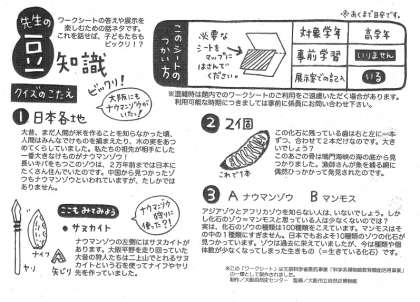 ※あくまで目安です。
先生の
豆知識
ワークシートの答えや展示を
楽しむための話ネタです。
これを話せば、子どもたちも
ビックリ!?
このシートの
つかい方
必要な
シートを
マップに
はさんで
ください。
対象学年 高学年
事前学習 いりません
展示室での記入 いる
※混雑時は館内でのワークシートのご利用をご遠慮いただく場合があります。
利用可能な時期につきましては事前に係員にお問い合わせ下さい。
クイズのこたえ
ビックリ!
大阪にも
ナウマンゾウが
いた!
1 日本各地
大昔、まだ人間が米を作ることを知らなかった頃、
人間はみんなでけものを捕まえたり、木の実をあつ
めてくらしていました。私たちの祖先が相手にした
一番大きなけものがナウマンゾウ!
長いキバをもつこのゾウは、2万年前までは日本に
たくさん住んでいたのです。中国から見つかったゾ
ウもナウマンゾウといわれていますが、たしかでは
ありません。
2 2個
これで1本
この化石に残っている歯は右と左に一本
ずつ、合わせて2本だけなのです。大き
いでしょう?
このあごの骨は鳴門海峡の海の底から見
つかりました。漁師さんが魚を捕る網に
偶然ひっかかって発見されたのです。
ここもみてみよう
ナウマンゾウ
狩りに
使った?!
●サヌカイト
ナウマンゾウの左側にはサヌカイトが
あります。大阪平野を走り回っていた
大昔の狩人たちは二上山でとれるサヌ
カイトという石を使ってナイフやヤリ
先を作っていました。
ナイフ
ヤリ
矢じり
3 A ナウマンゾウ B マンモス
アジアゾウとアフリカゾウを知らない人は、いないでしょう。しか
し化石のゾウ=マンモスと思っている人は少なくないのでは?
実は、化石のゾウの種類は100種類をこえています。マンモスはそ
の中の1種類にすぎません。日本でもおよそ10種類のゾウの化石が
見つかっています。ゾウは過去に栄えていましたが、今は種類や個
体数が少なくなってしまった生きもの(=生きている化石)です。